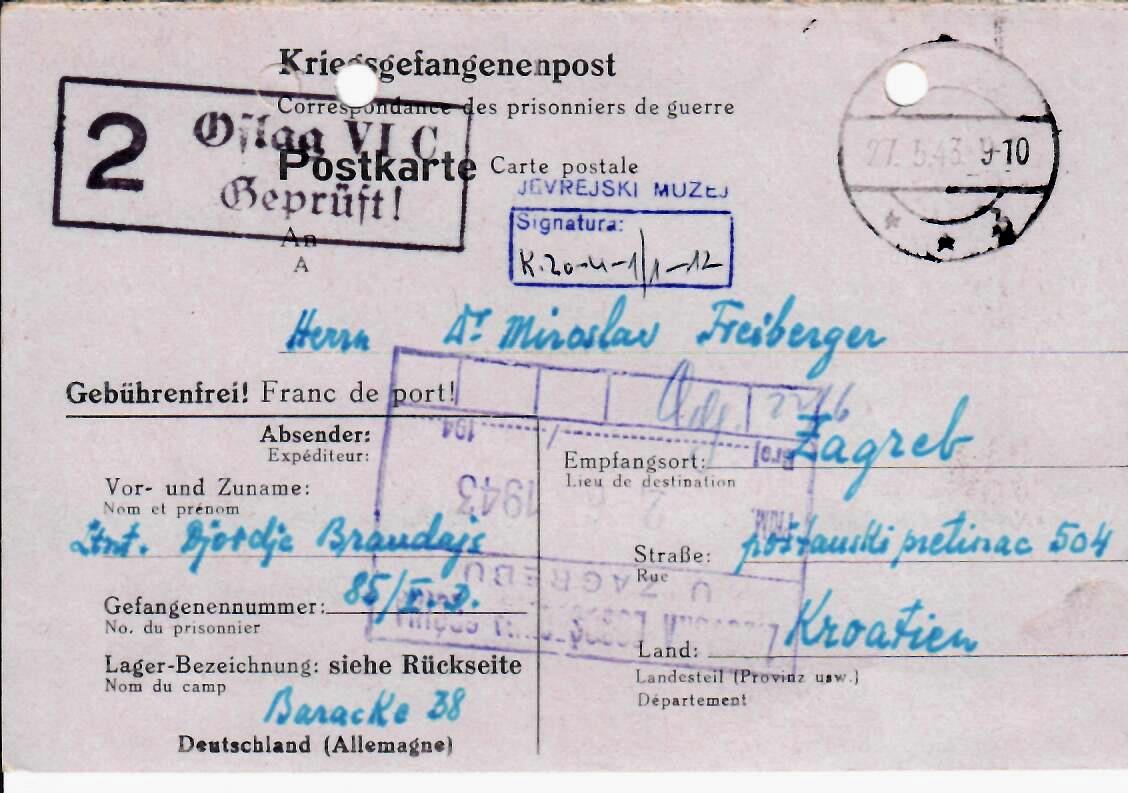 Kriegsgefangenenpost
Correspondance des prisonniers de guerre
2 Oflag VI C
Geprüft!
Postkarte Carte postale
27. 5.43. 9-10
JEVREJSKI MUZEJ
Signatura:
K.20-4-1/1-12
An
A
Herrn Dr Miroslav Freiberger
Gebührenfrei! Franc de port!
Absender:
Expéditeur:
Vor- und Zuname:
Nom et prénom
Ltnt. Djordje Brandajs
Gefangenennummer: 85/
No. du prisonnier
Lager-Bezeichnung: siehe Rückseite
Nom du camp
Baracke 38
Deutschland (Allemagne)
Zagreb
Empfangsort:
Lieu de destination
Straße: poštanski pretinac 504
Rue
Land: Kroatien
Landesteil (Provinz usw.)
Département
194
Broj
1943
U ZAGREBU